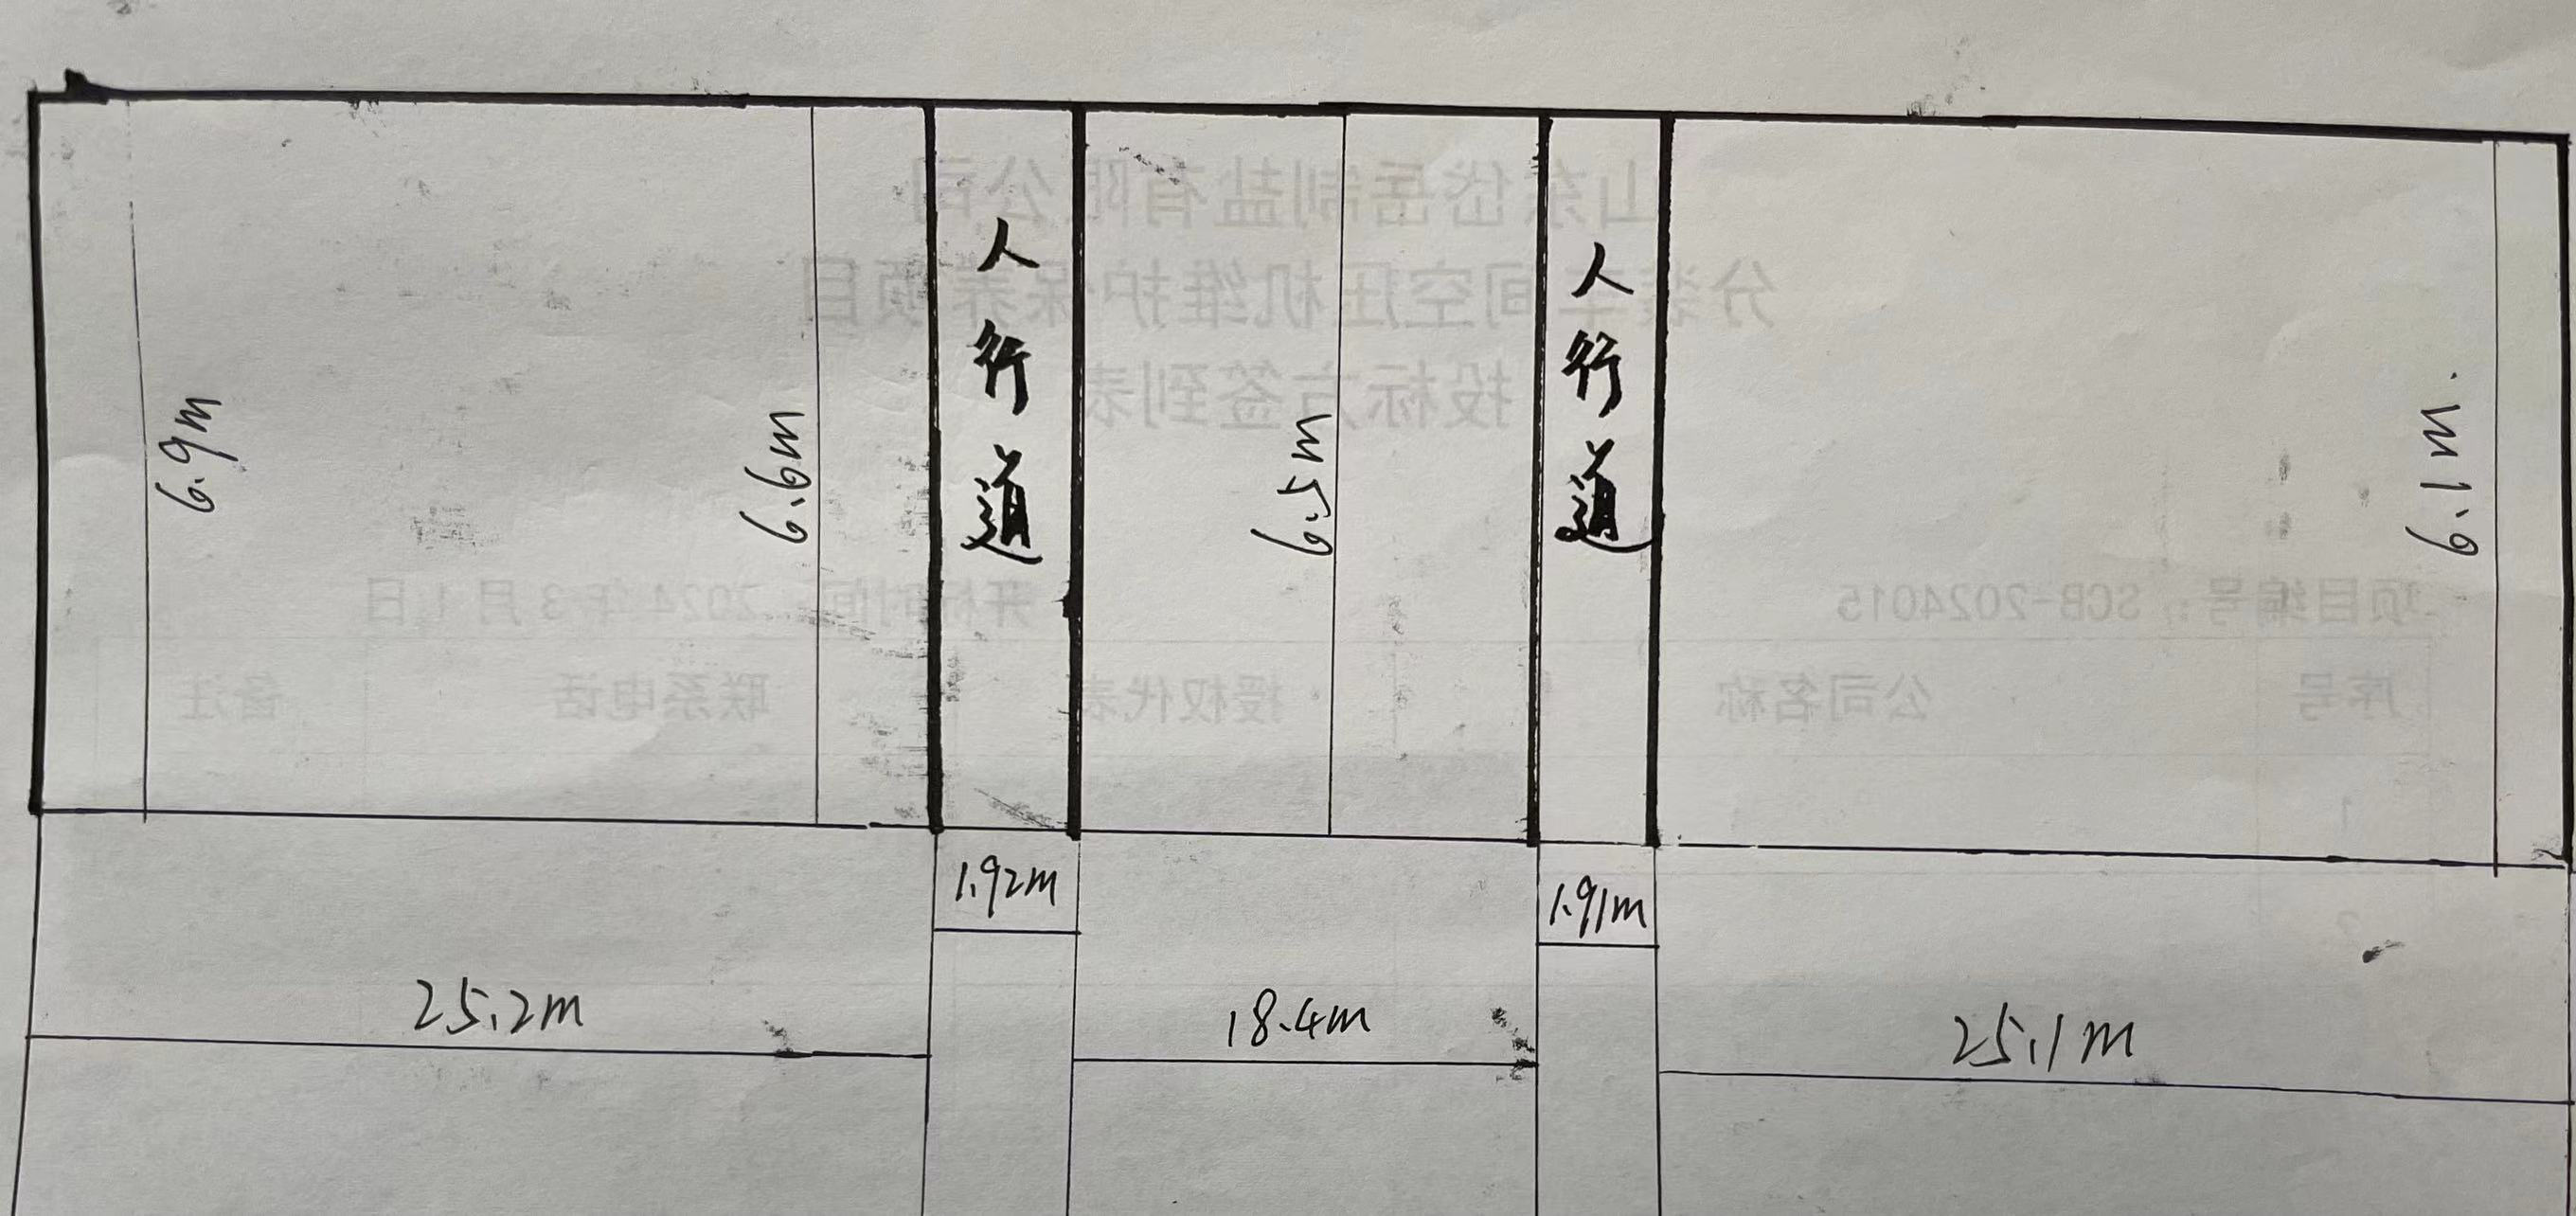 6.9m
6.6m
人行道
6.5m
人行道
6.1m
1.92m
1.91m
25.2m
18.4m
25.1m
山东岱岳制盐有限公司
分装车间空压机维护保养项目
投标方签到表
项目编号：SCB-2024015
开标时间：2024年3月1日
序号 公司名称 授权代表 联系电话 备注
1
2